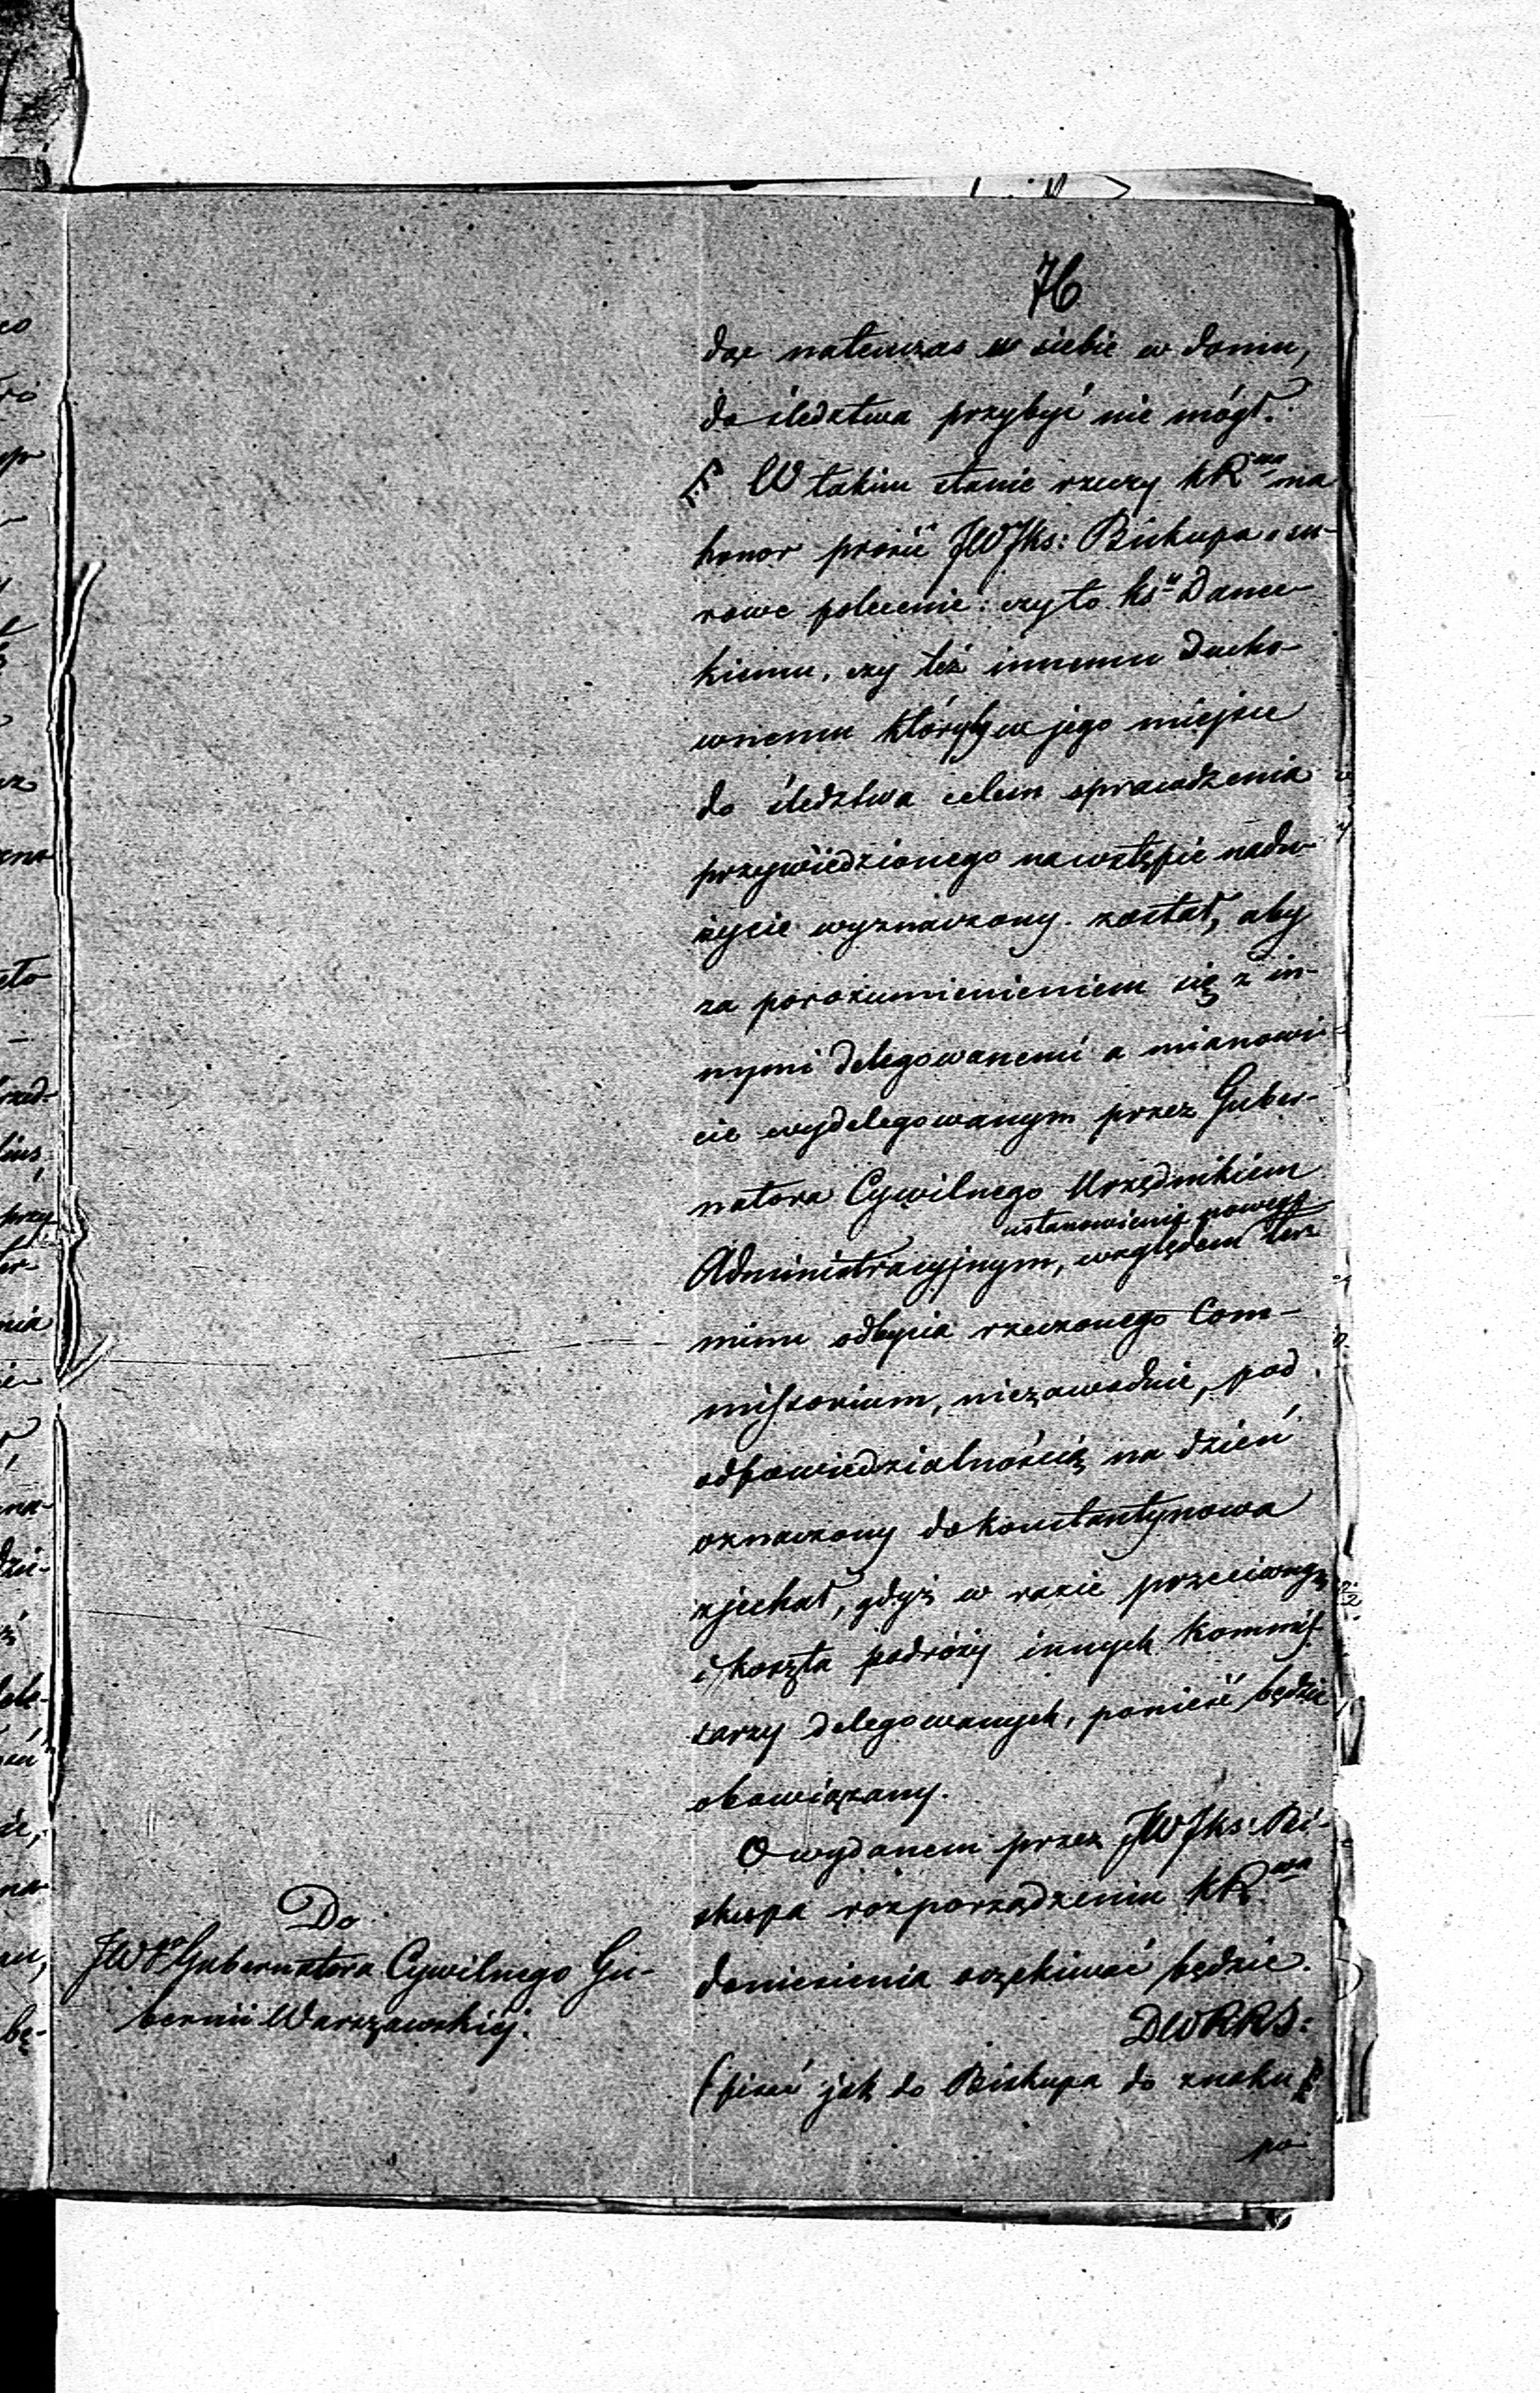 76
dąc natenczas w siebie w domu,
do śledztwa przybyć nie mógł.
W takim stanie rzeczy KR.wa ma
honor prosić JWJks: Biskupa o su-
rowe polecenie: czy to ks. Dance-
kiemu, czy też innemu Ducho-
wnemu któryby w jego miejsce
do śledztwa celem sprawdzenia
przywiedzionego na wstępie nadu-
życie wyznaczony został, aby
za porozumieniem się z in-
nymi delegowanemi a mianowi-
cie wydelegowanym przez Guber-
natora Cywilnego Urzędnikiem
ustanowienia nowego
Administracyjnym, względem ter-
minu odbycia rzeczonego Com-
missorium, niezawodnie, pod
odpowiedzialnością na dzień
oznaczony do Konstantynowa
zjechał, gdyż w razie przeciwnym
i koszta podróży innych Kommis-
sarzy delegowanych, ponieść będzie
obowiązany.
O wydanem przez JWJks: Bi-
skupa rozporządzeniu KR.wa
doniesienia oczekiwać będzie.
DWRRS:
Do
JWgo Gubernatora Cywilnego Gu-
bernii Warszawskiej.
(pisać jak do Biskupa do znaku
po